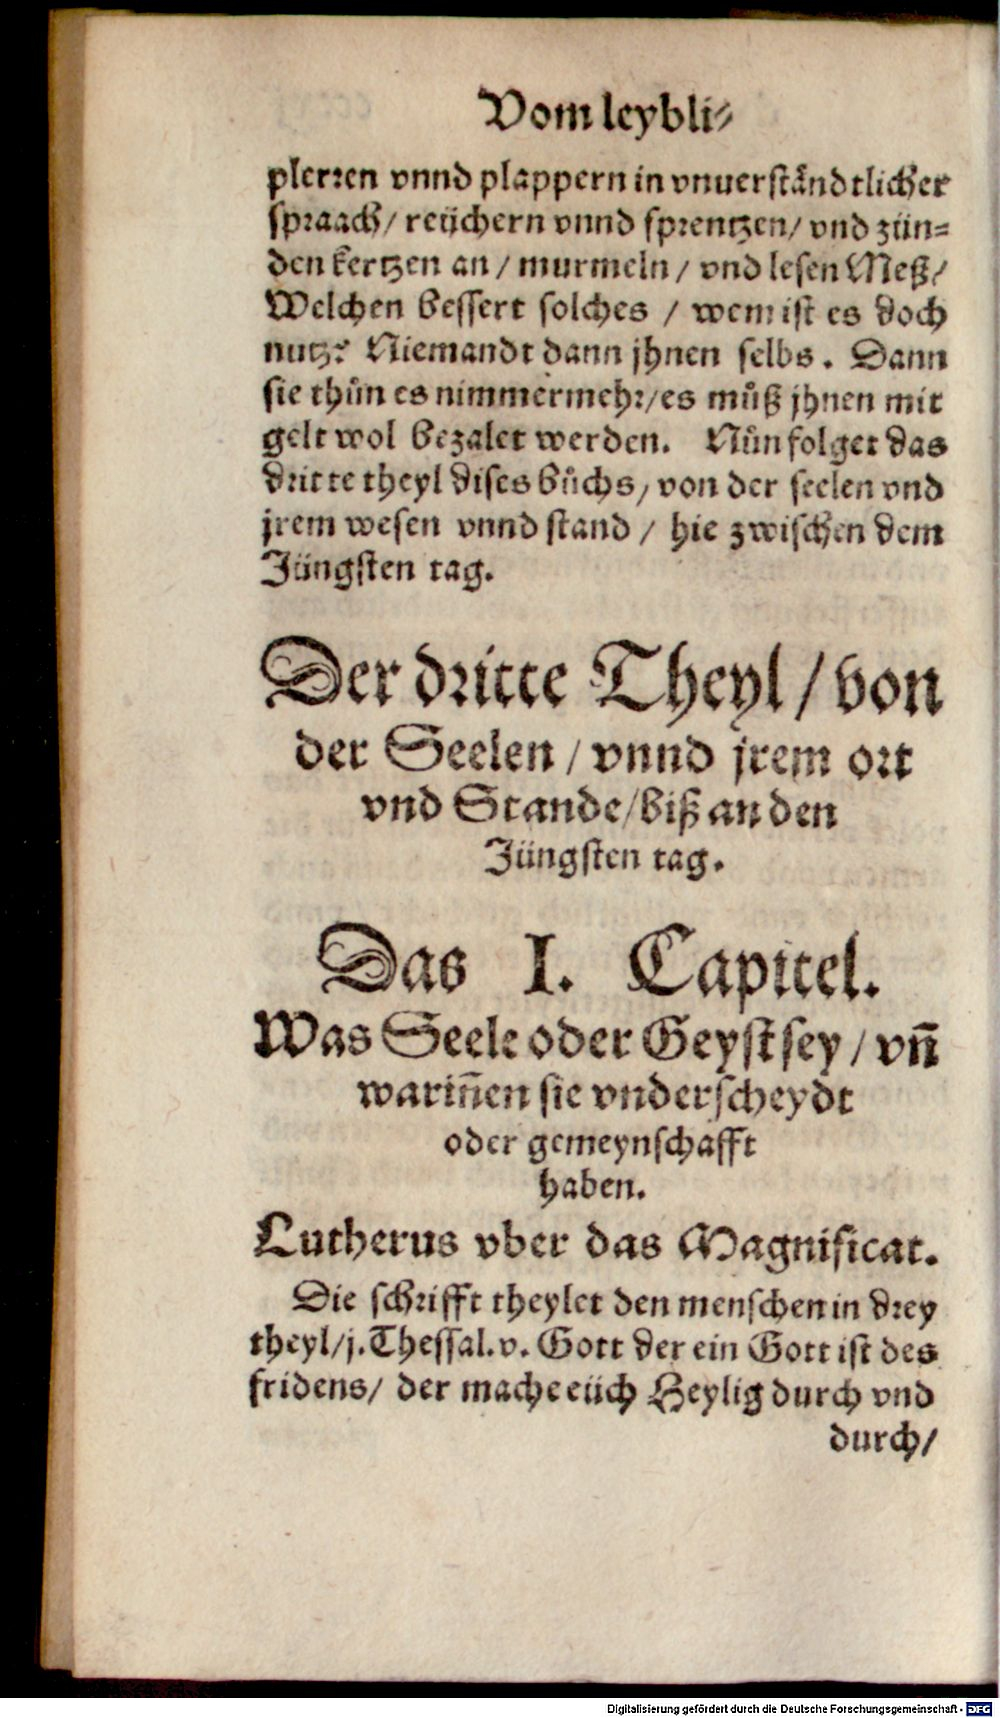 Vom leybli⸗
plerren vnnd plappern in vnuerständtlicher
spraach/ reüchern vnnd sprentzen/ vnd zün⸗
den kertzen an / murmeln / vnd lesen Meß/
Welchen bessert solches / wem ist es doch
nutz? Niemandt dann jhnen selbs. Dann
sie thůn es nimmermehr/es můß jhnen mit
gelt wol bezalet werden. Nůn folget das
dritte theyl dises bůchs, von der seelen vnd
jrem wesen vnnd stand / hie zwischen dem
Jüngsten tag.
Der dritte Theyl / von
der Seelen / vnnd jrem ort
vnd Stande/biß an den
Jüngsten tag.
Das I. Capitel.
Was Seele oder Geyst sey / vñ
wariñen sie vnderscheydt
oder gemeynschafft
haben.
Lutherus vber das Magnificat.
Die schrifft theylet den menschen in drey
theyl/j.Thessal.v. Gott der ein Gott ist des
fridens/ der mache eüch Heylig durch vnd
durch/
Digitalisierung gefördert durch die Deutsche Forschungsgemeinschaft - DFG